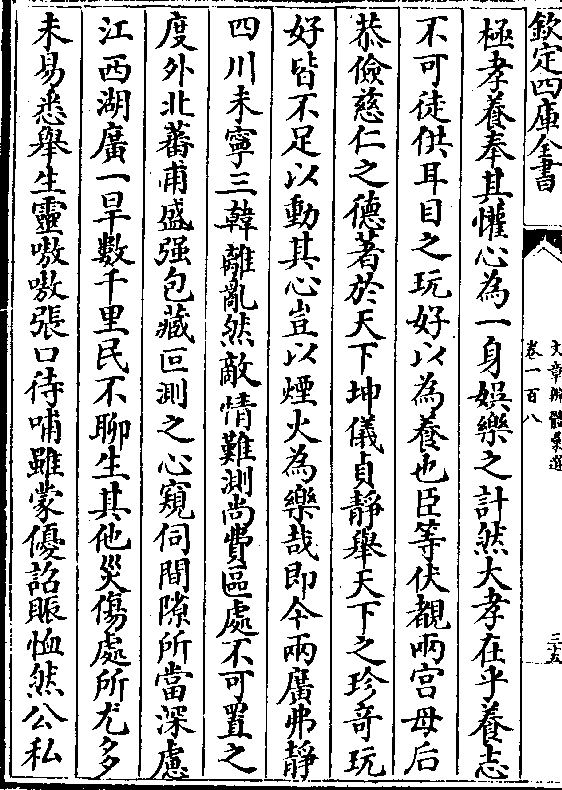 欽定四庫全書
文章辨體彙選
卷一百八
三十五
極孝養奉其懽心為一身娛樂之計然大孝在乎養志
不可徒供耳目之玩好以為養也臣等伏覩兩宮母后
恭儉慈仁之德著於天下坤儀貞靜舉天下之珍奇玩
好皆不足以動其心豈以煙火為樂哉即今兩廣弗靜
四川未寧三韓離亂然敵情難測尚費區處不可置之
度外北蕃甫盛强包藏叵測之心窺伺間隙所當深慮
江西湖廣一旱數千里民不聊生其他災傷處所尤多
未易悉舉生靈嗷嗷張口待哺雖蒙優詔賑恤然公私